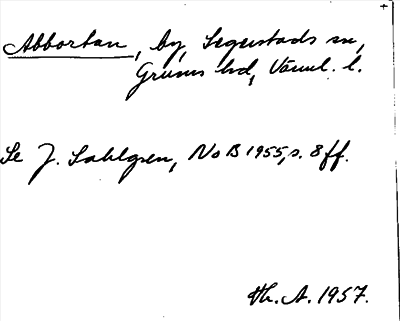 Abbortan, by, Segerstads sn,
Grums hd, Värml. l.
Se J. Sahlgren, NoB 1955, s. 8 ff.
Th. A. 1957.